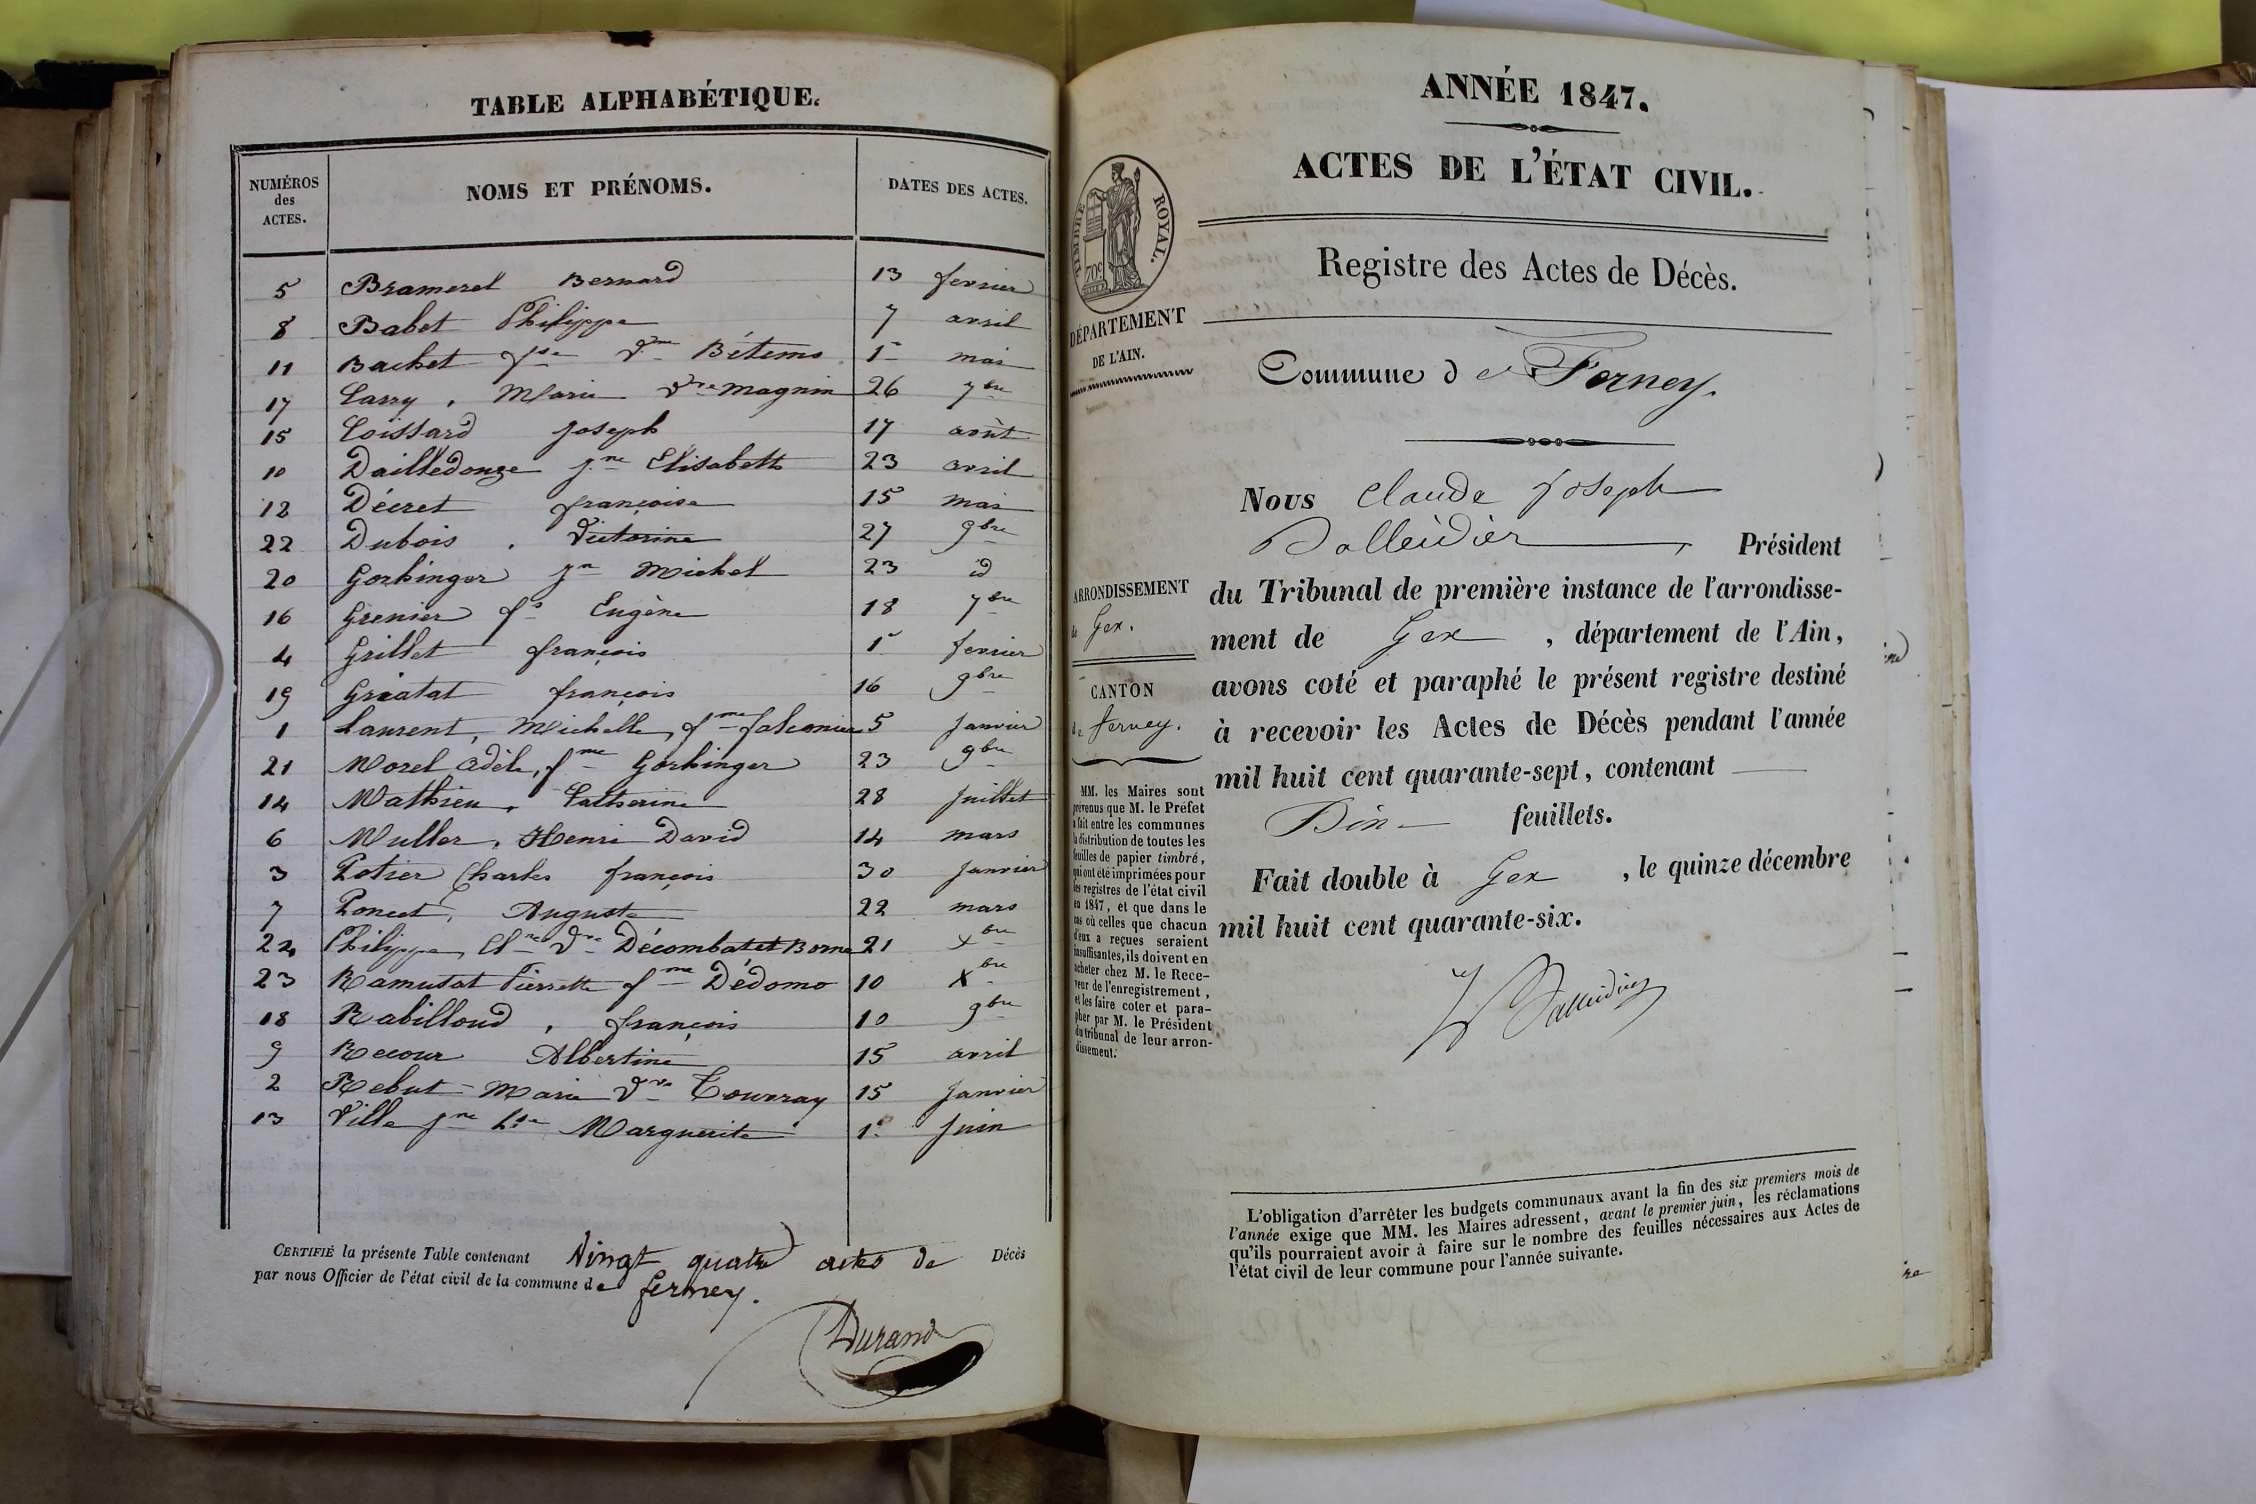 TABLE ALPHABÉTIQUE.
NUMÉROS des ACTES. NOMS ET PRÉNOMS. DATES DES ACTES.
5 Brameret Bernard 13 fevrier
8 Babet Philippe 7 avril
11 Bachet fse Vve Bétems 1er mai
17 Carry, Marie Vve Magnin 26 7bre
15 Coissard Joseph 17 août
10 Dailledouze jne Elisabeth 23 avril
12 Décret françoise 15 mai
22 Dubois, Victorine 27 9bre
20 Gorhinger jn Michel 23 id
16 Grenier fs Eugène 18 7bre
4 Grillet françois 1er fevrier
19 Griatat françois 16 9bre
1 Laurent, Michelle, fme falconier 5 Janvier
21 Morel Adèle, fme Gorhinger 23 9bre
14 Mathieu, Catherine 28 Juillet
6 Muller, Henri David 14 mars
3 Potier Charles françois 30 Janvier
7 Poncet, Auguste 22 mars
24 Philippe, Cl Vve Décombat et Borne 21 Xbre
23 Ramutat Pierrette fme Dédomo 10 Xbre
18 Rabilloud, françois 10 9bre
9 Recour Albertine 15 avril
2 Rebut Marie Vve Couvray 15 Janvier
13 Ville jne Marguerite 1er Juin
CERTIFIÉ la présente Table contenant Vingt quatre actes de Décès
par nous Officier de l'état civil de la commune de ferney.
Durand
ANNÉE 1847.
ACTES DE L'ÉTAT CIVIL.
TIMBRE ROYAL.
70c
Registre des Actes de Décès.
DÉPARTEMENT
DE L'AIN.
Commune de Ferney.
Nous Claude Joseph
Balleidier, Président
ARRONDISSEMENT
de Gex.
du Tribunal de première instance de l'arrondisse-
ment de Gex, département de l'Ain,
CANTON
de ferney.
avons coté et paraphé le présent registre destiné
à recevoir les Actes de Décès pendant l'année
mil huit cent quarante-sept, contenant
Dix feuillets.
Fait double à Gex, le quinze décembre
mil huit cent quarante-six.
Balleidier
MM. les Maires sont
prévenus que M. le Préfet
a fait entre les communes
la distribution de toutes les
feuilles de papier timbré,
qui ont été imprimées pour
les registres de l'état civil
en 1847, et que dans le
cas où celles que chacun
d'eux a reçues seraient
insuffisantes, ils doivent en
acheter chez M. le Rece-
veur de l'enregistrement,
et les faire coter et para-
pher par M. le Président
du tribunal de leur arron-
dissement.
L'obligation d'arrêter les budgets communaux avant la fin des six premiers mois de
l'année exige que MM. les Maires adressent, avant le premier juin, les réclamations
qu'ils pourraient avoir à faire sur le nombre des feuilles nécessaires aux Actes de
l'état civil de leur commune pour l'année suivante.